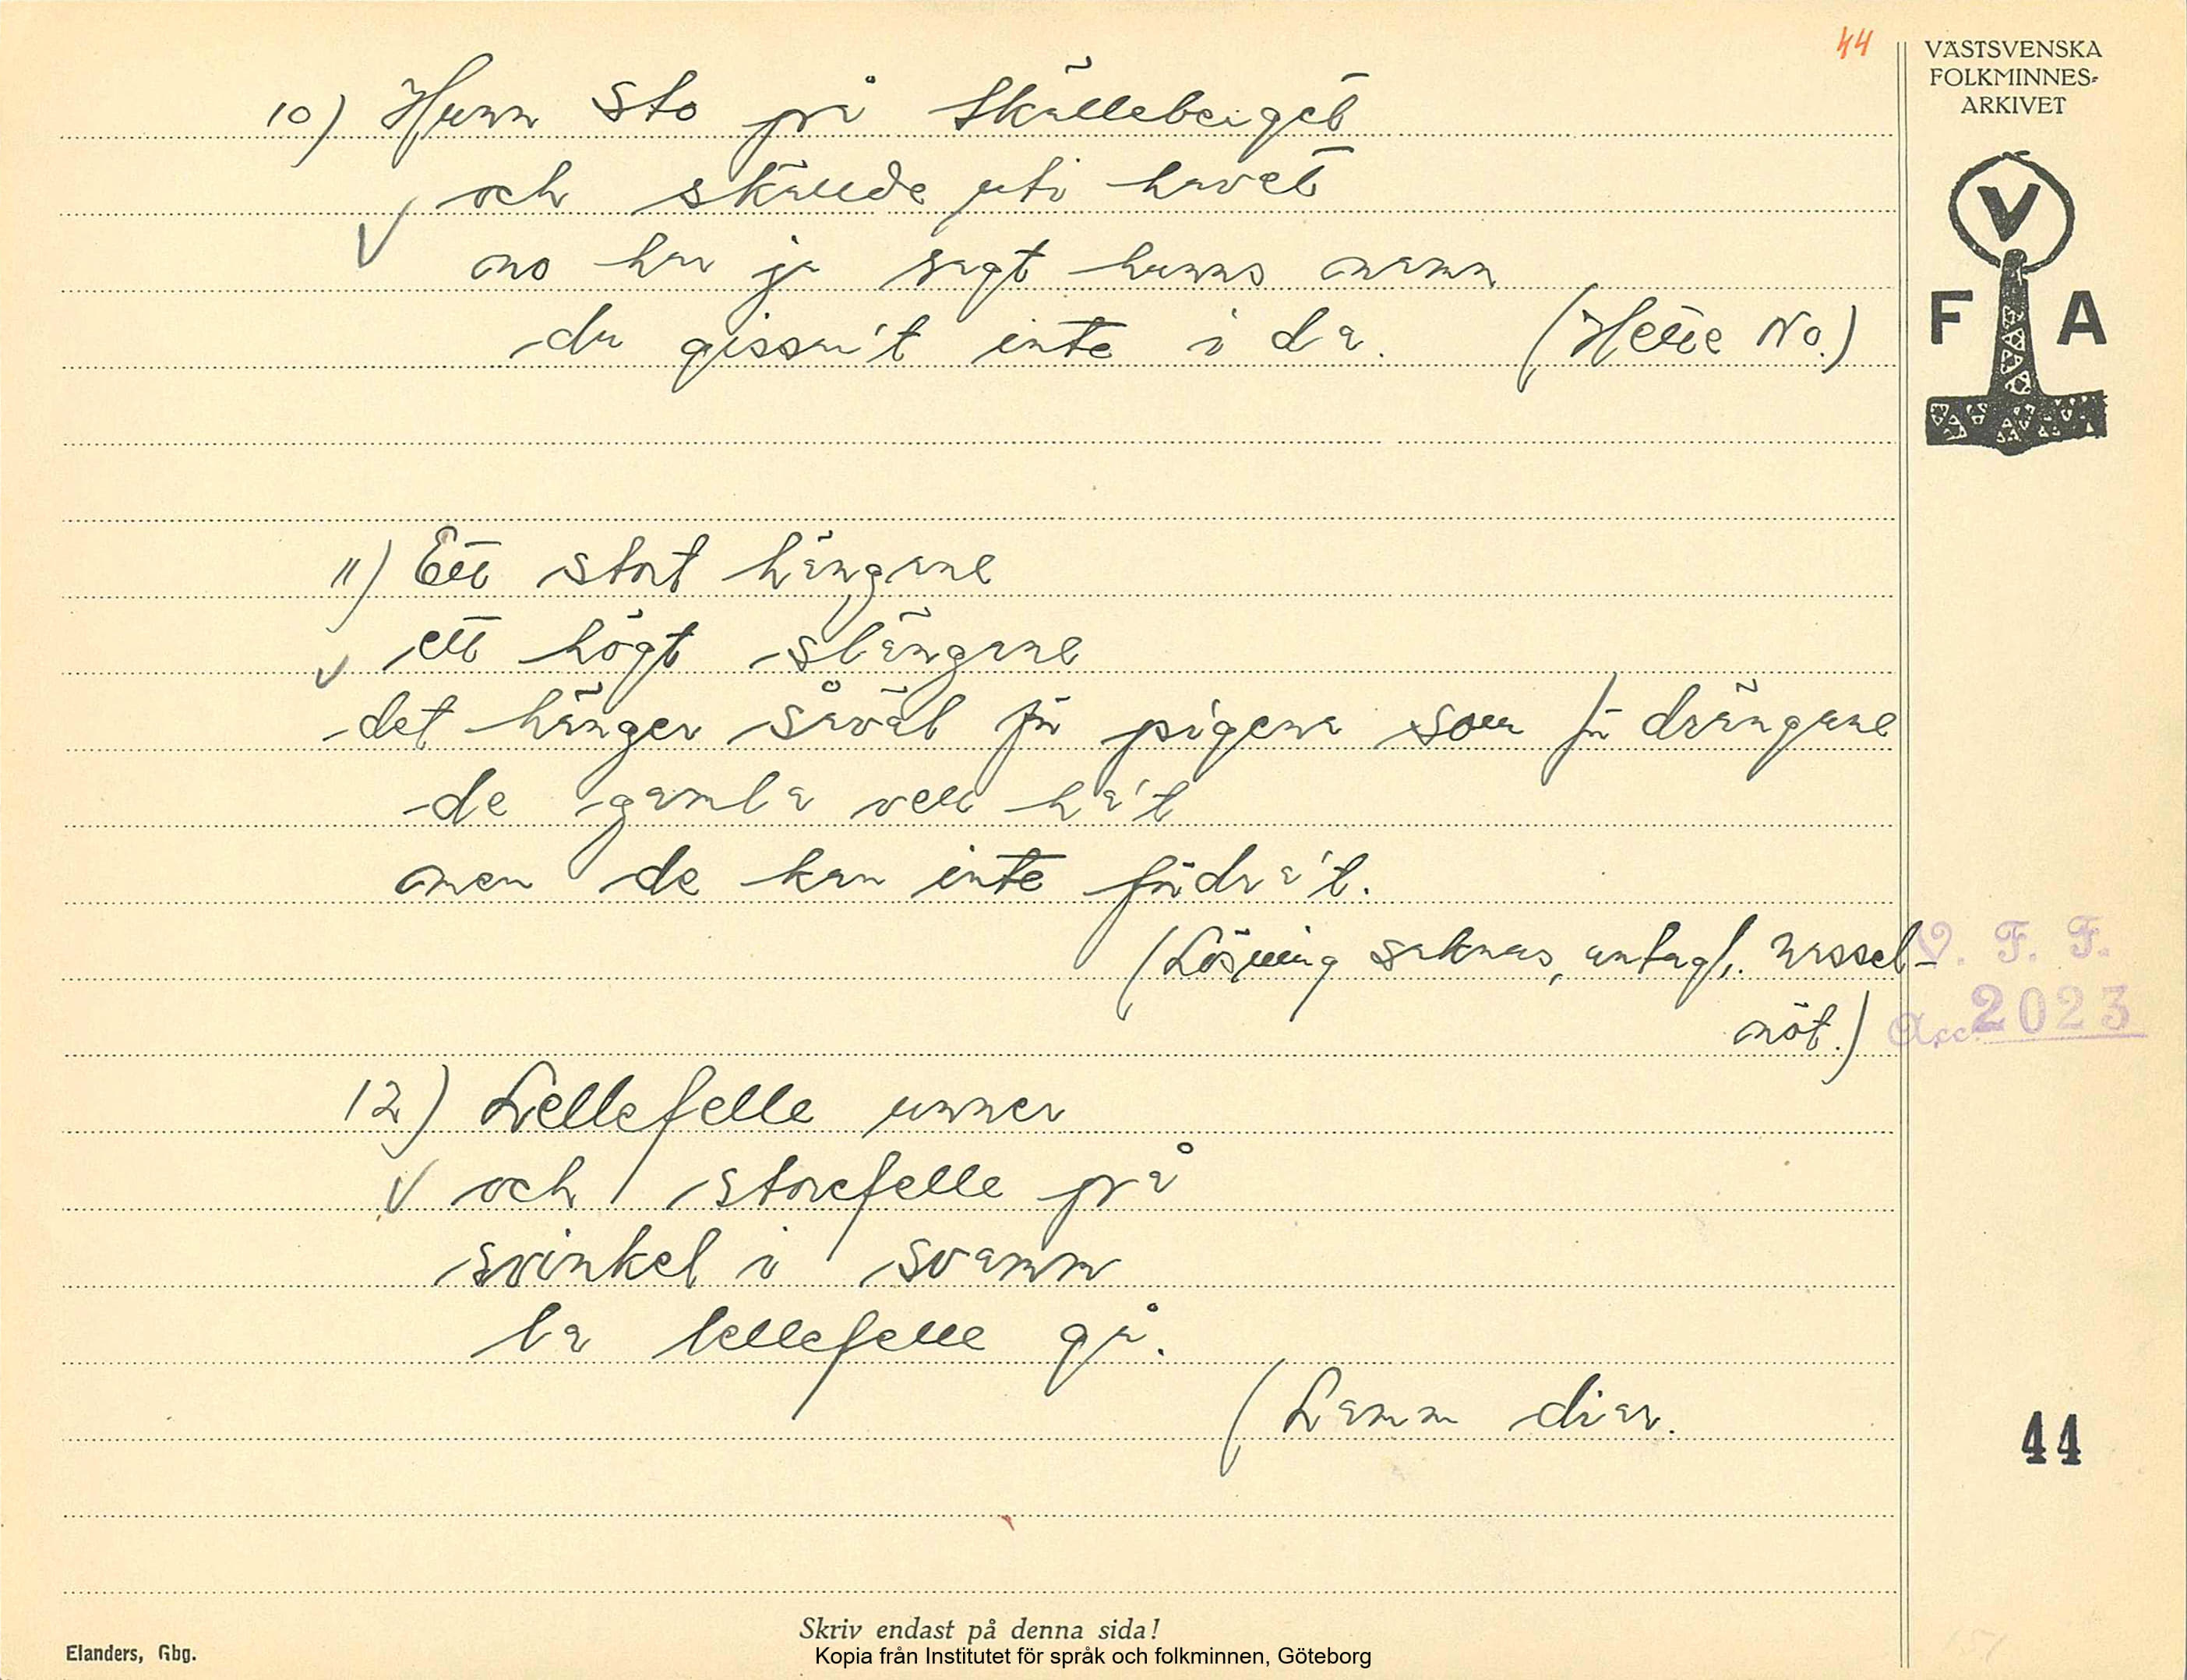 44
VÄSTSVENSKA
FOLKMINNES-
ARKIVET
V
F A
10) Hunn sto på Skälleberget
och skällde uti havet
no har ja sagt hunns namn
du gissar't inte i da. (Hette No.)
11) Ett stort hängane
ett högt slängane
det hänger såväl för pigena som för drängane
de gamla vell ha't
men de kan inte födra't.
(Lösning saknas, antagl. hassel-
nöt.)
V. F. F.
Acc. 2023
12) Lellefelle unner
och storefelle på
svinkel i svamm
la lellefelle gå.
(Lamm diar.
44
Skriv endast på denna sida!
Elanders, Gbg.
Kopia från Institutet för språk och folkminnen, Göteborg